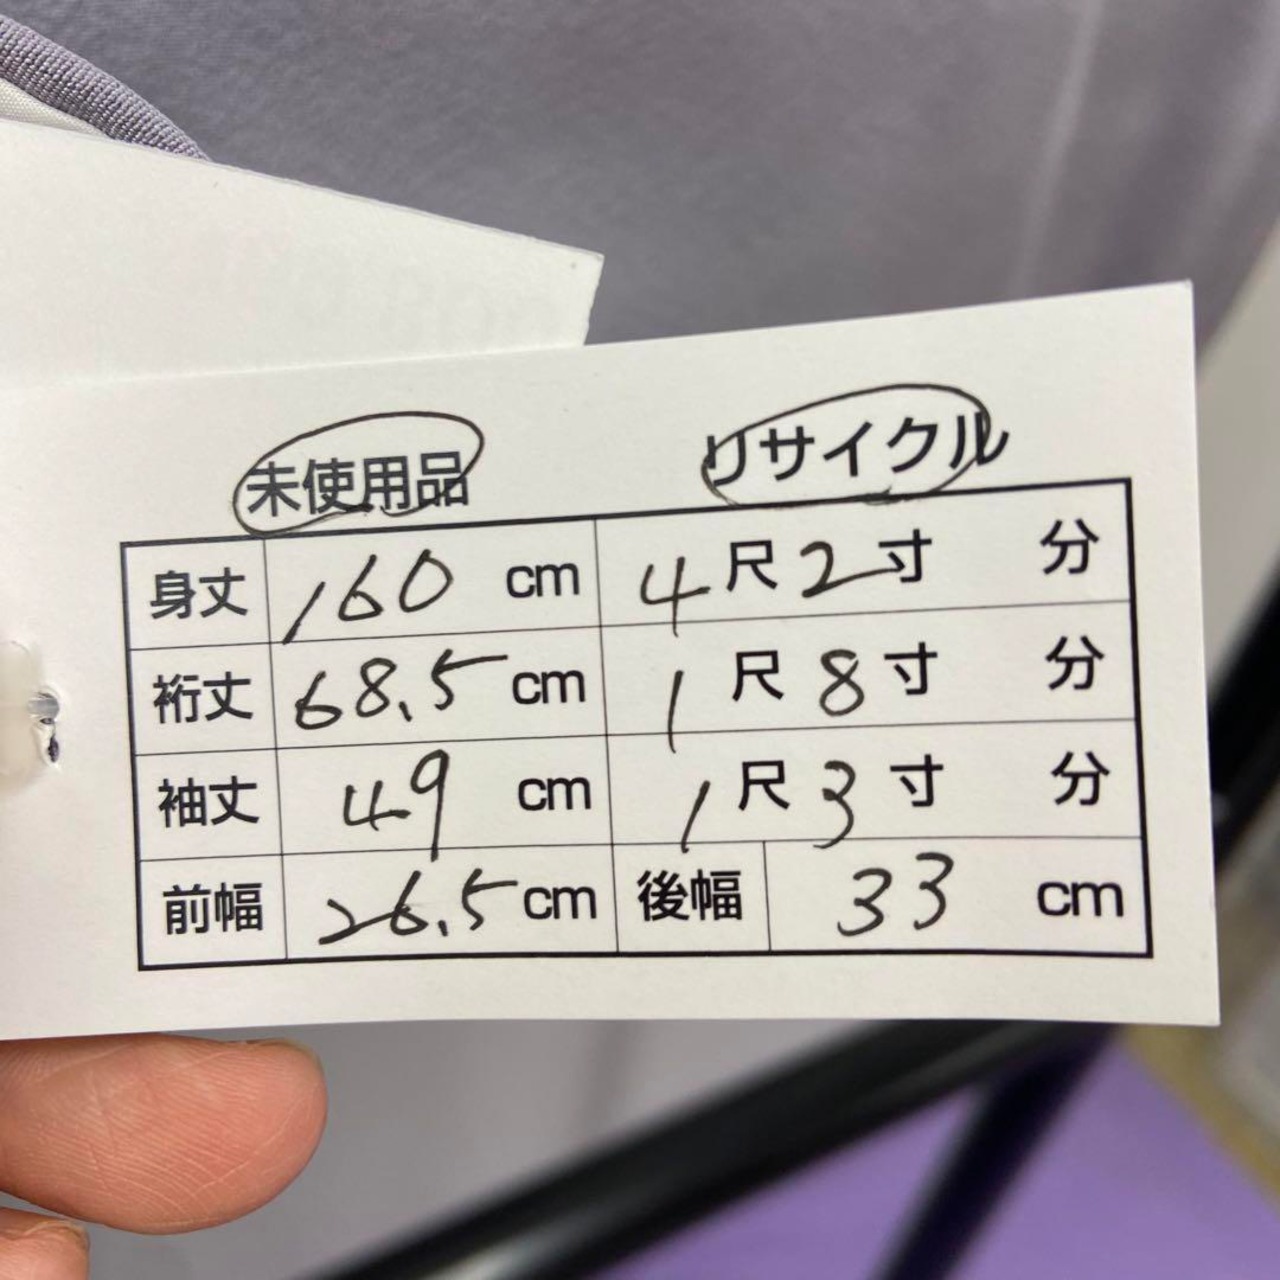 未使用品 リサイクル
身丈 160 cm 4尺2寸 分
裄丈 68.5 cm 1尺8寸 分
袖丈 49 cm 1尺3寸 分
前幅 26.5 cm 後幅 33 cm